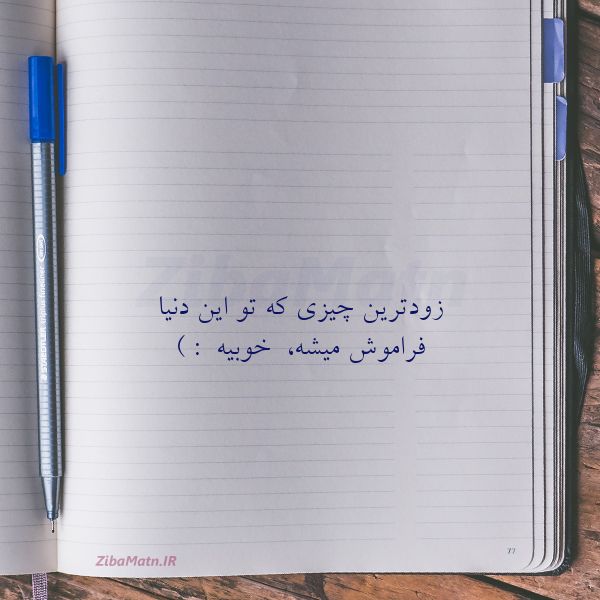 ZibaMatn
زودترین چیزی که تو این دنیا
فراموش میشه، خوبیه : )
77
ZibaMatn.IR